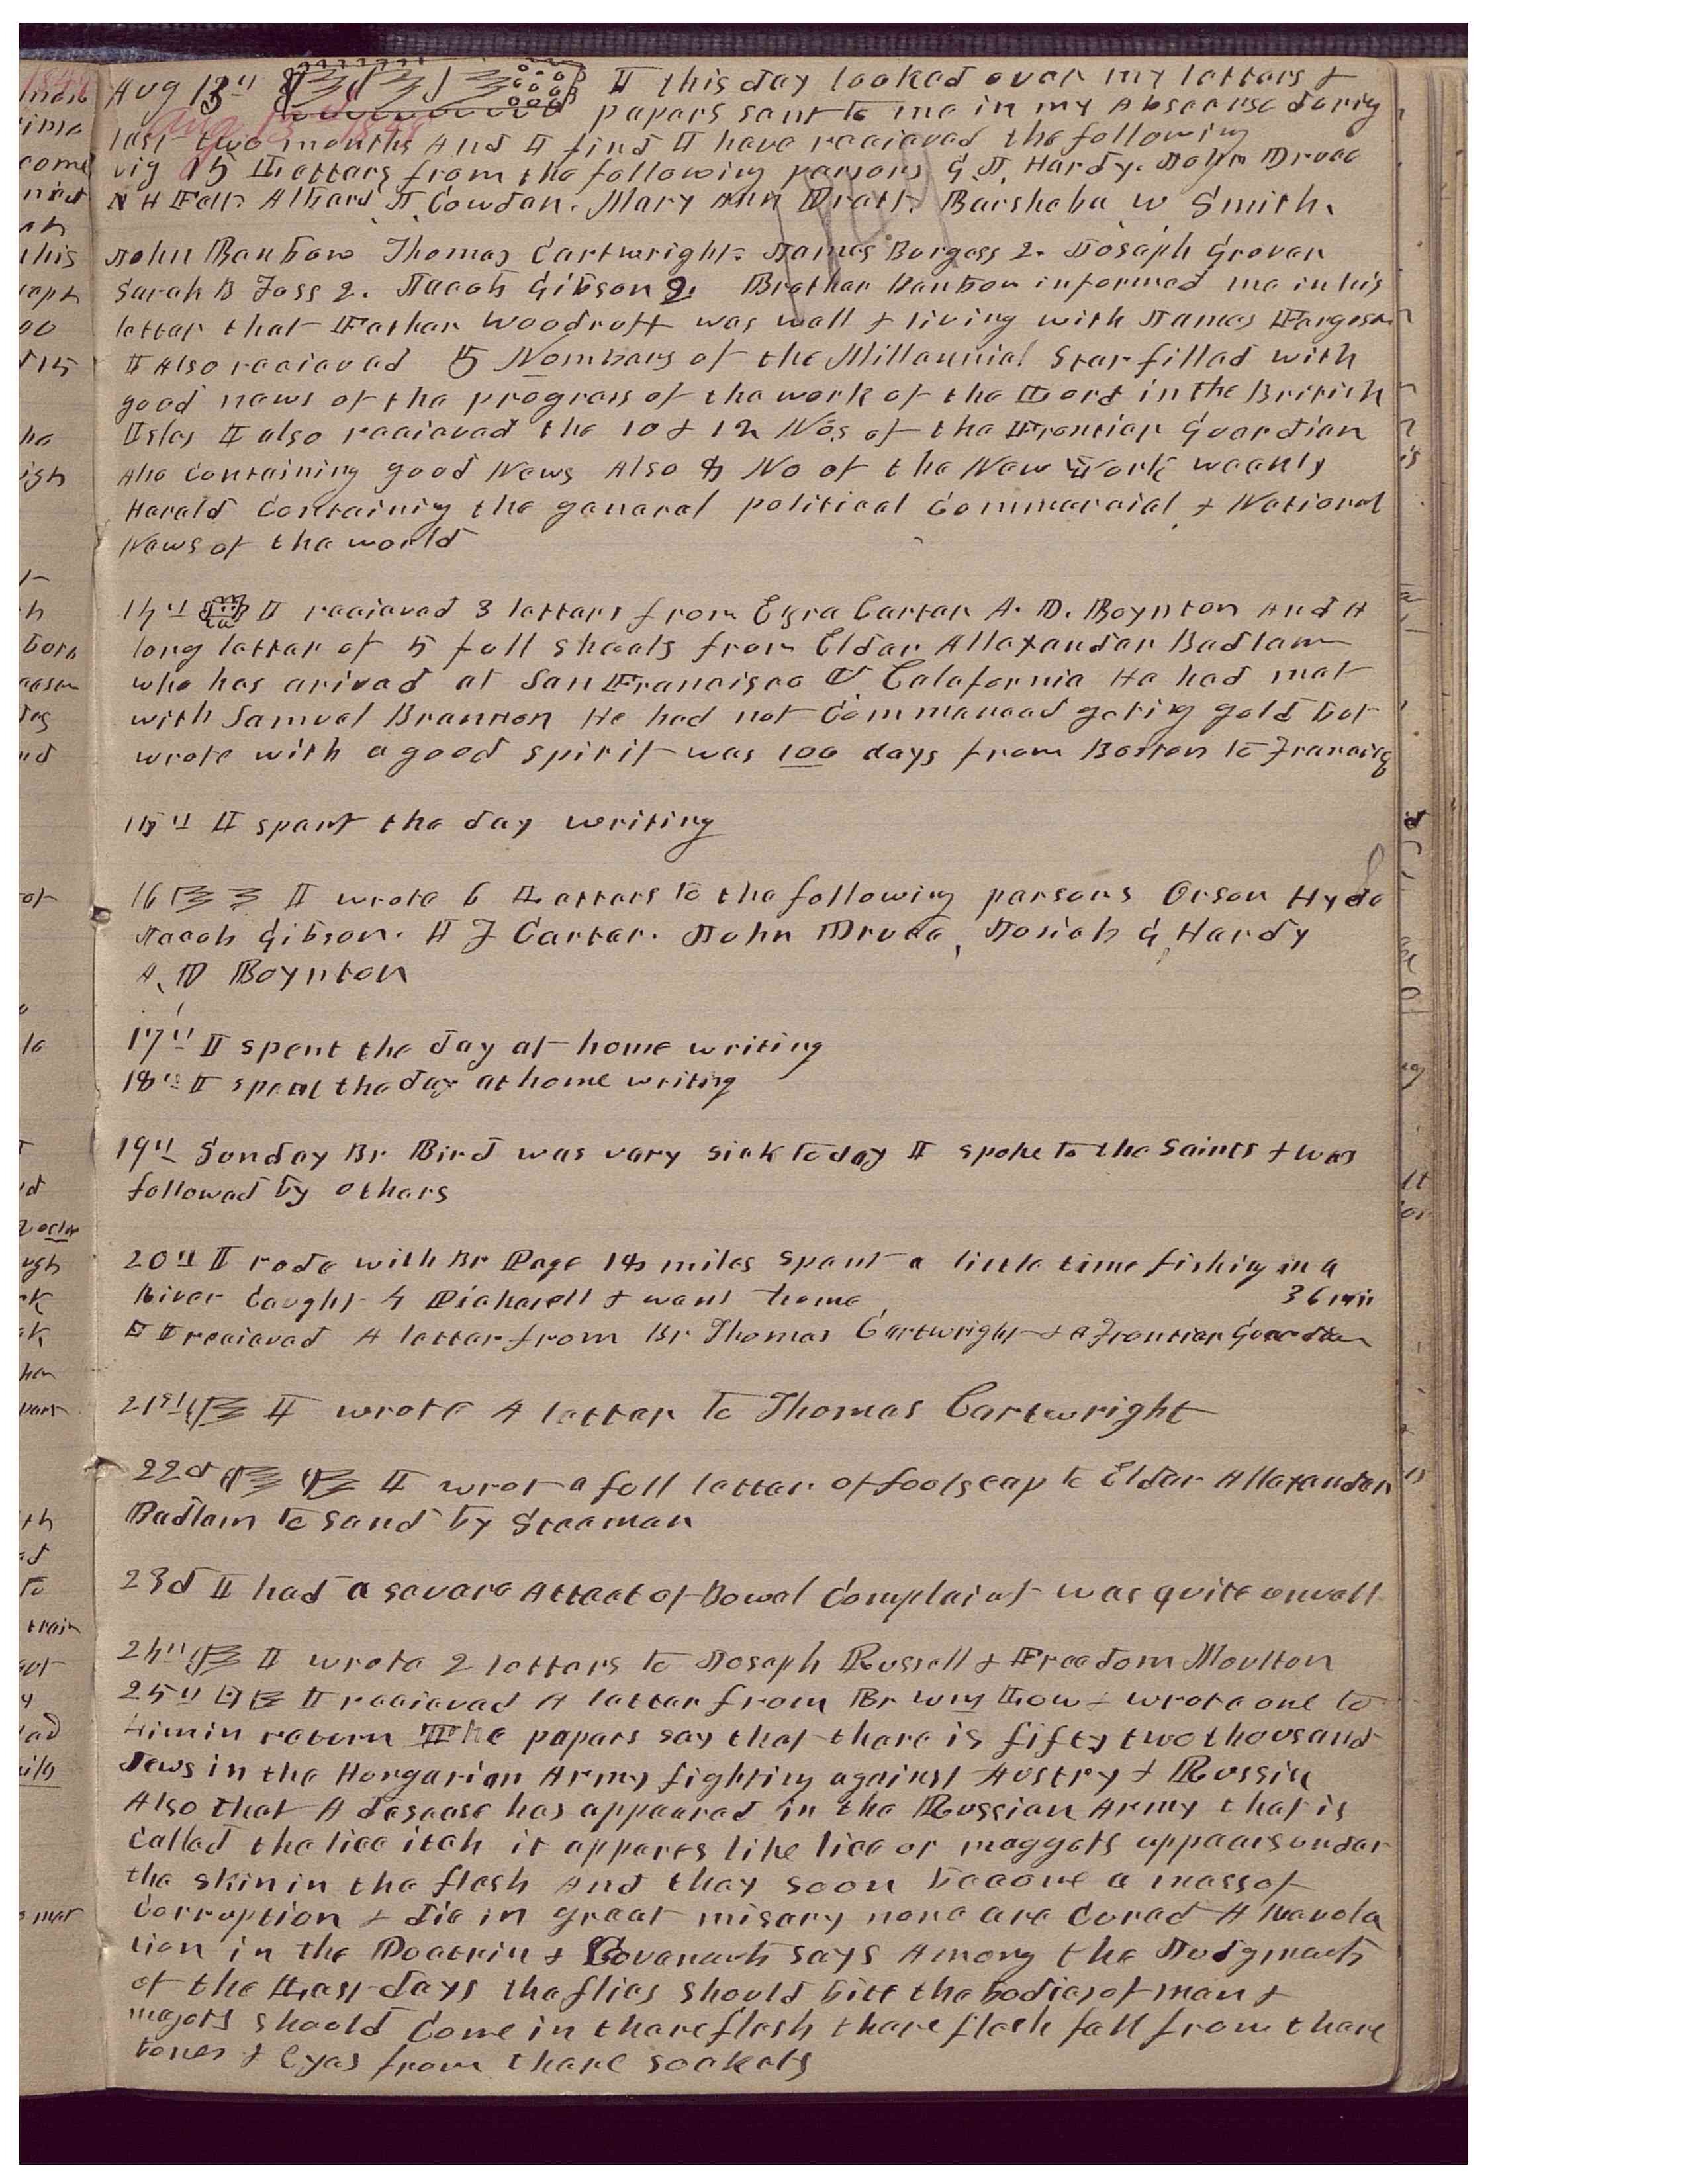 Aug 13th I this day looked over my letters &
papers sent to me in my Absence during
Aug 13th 1849
last two months And I find I have received the following
viz 15 Letters from the following persons G. J. Hardy. John Druce
N H Felt. Albard J. Cowdan. Mary Ann Pratt. Barsheba W Smith.
John Benbow Thomas Cartwright. James Burgess 2. Joseph Grover
Sarah B Foss 2. Jacob Gibson 2. Brother Benbow informed me in his
letter that Father Woodruff was well & living with James Furgeson
I Also received 5 Nombers of the Millennial Star filled with
good news of the progress of the work of the Lord in the British
Isles I also received the 10 & 12 Nos of the Frontier Guardian
Also containing good News Also 8 No of the New York weekly
Herald Containing the general political Commercial & National
News of the world
14th I received 3 letters from Ezra Carter A. D. Boynton And A
long letter of 5 full sheets from Elder Allexander Badlam
who has arived at San Francisco Calafornia He had met
with Samuel Brannon He had not Commenced geting gold but
wrote with a good spirit was 100 days from Boston to Francisco
15th I spent the day writing
16 I wrote 6 Letters to the following persons Orson Hyde
Jacob Gibson. H J Carter. John Druce, Josiah G, Hardy
A, D Boynton
17th I spent the day at home writing
18th I spent the day at home writing
19th Sunday Br Bird was very sick to day I spoke to the Saints & was
followed by others
20th I rode with Br Page 18 miles spent a little time fishing in a
River Caught 4 Pickerell & went home 36 mi
I received A letter from Br Thomas Cartwright & A Frontier Guardian
21st I wrote A letter to Thomas Cartwright
22d I wrot a full letter of foolscap to Elder Allexander
Badlam to send by Steemer
23d I had a severe Attact of Bowel Complaint was quite unwell
24th I wrote 2 letters to Joseph Russell & Freedom Moulton
25th I received A letter from Br Wm Low & wrote one to
him in return The papers say that there is fifty two thousand
Jews in the Hongarian Army fighting against Austry & Russia
Also that A desease has appeared in the Russian Army that is
Called the lice itch it apperes like lice or maggots appears under
the skin in the flesh And they soon become a mass of
Corruption & die in great misery none are Cured A Revela
tion in the Doctrin & Covenants says Among the Judgments
of the Last days the flies should bite the bodies of men &
magots should Come in there flesh there flesh fall from there
bones & Eyes from there sockets